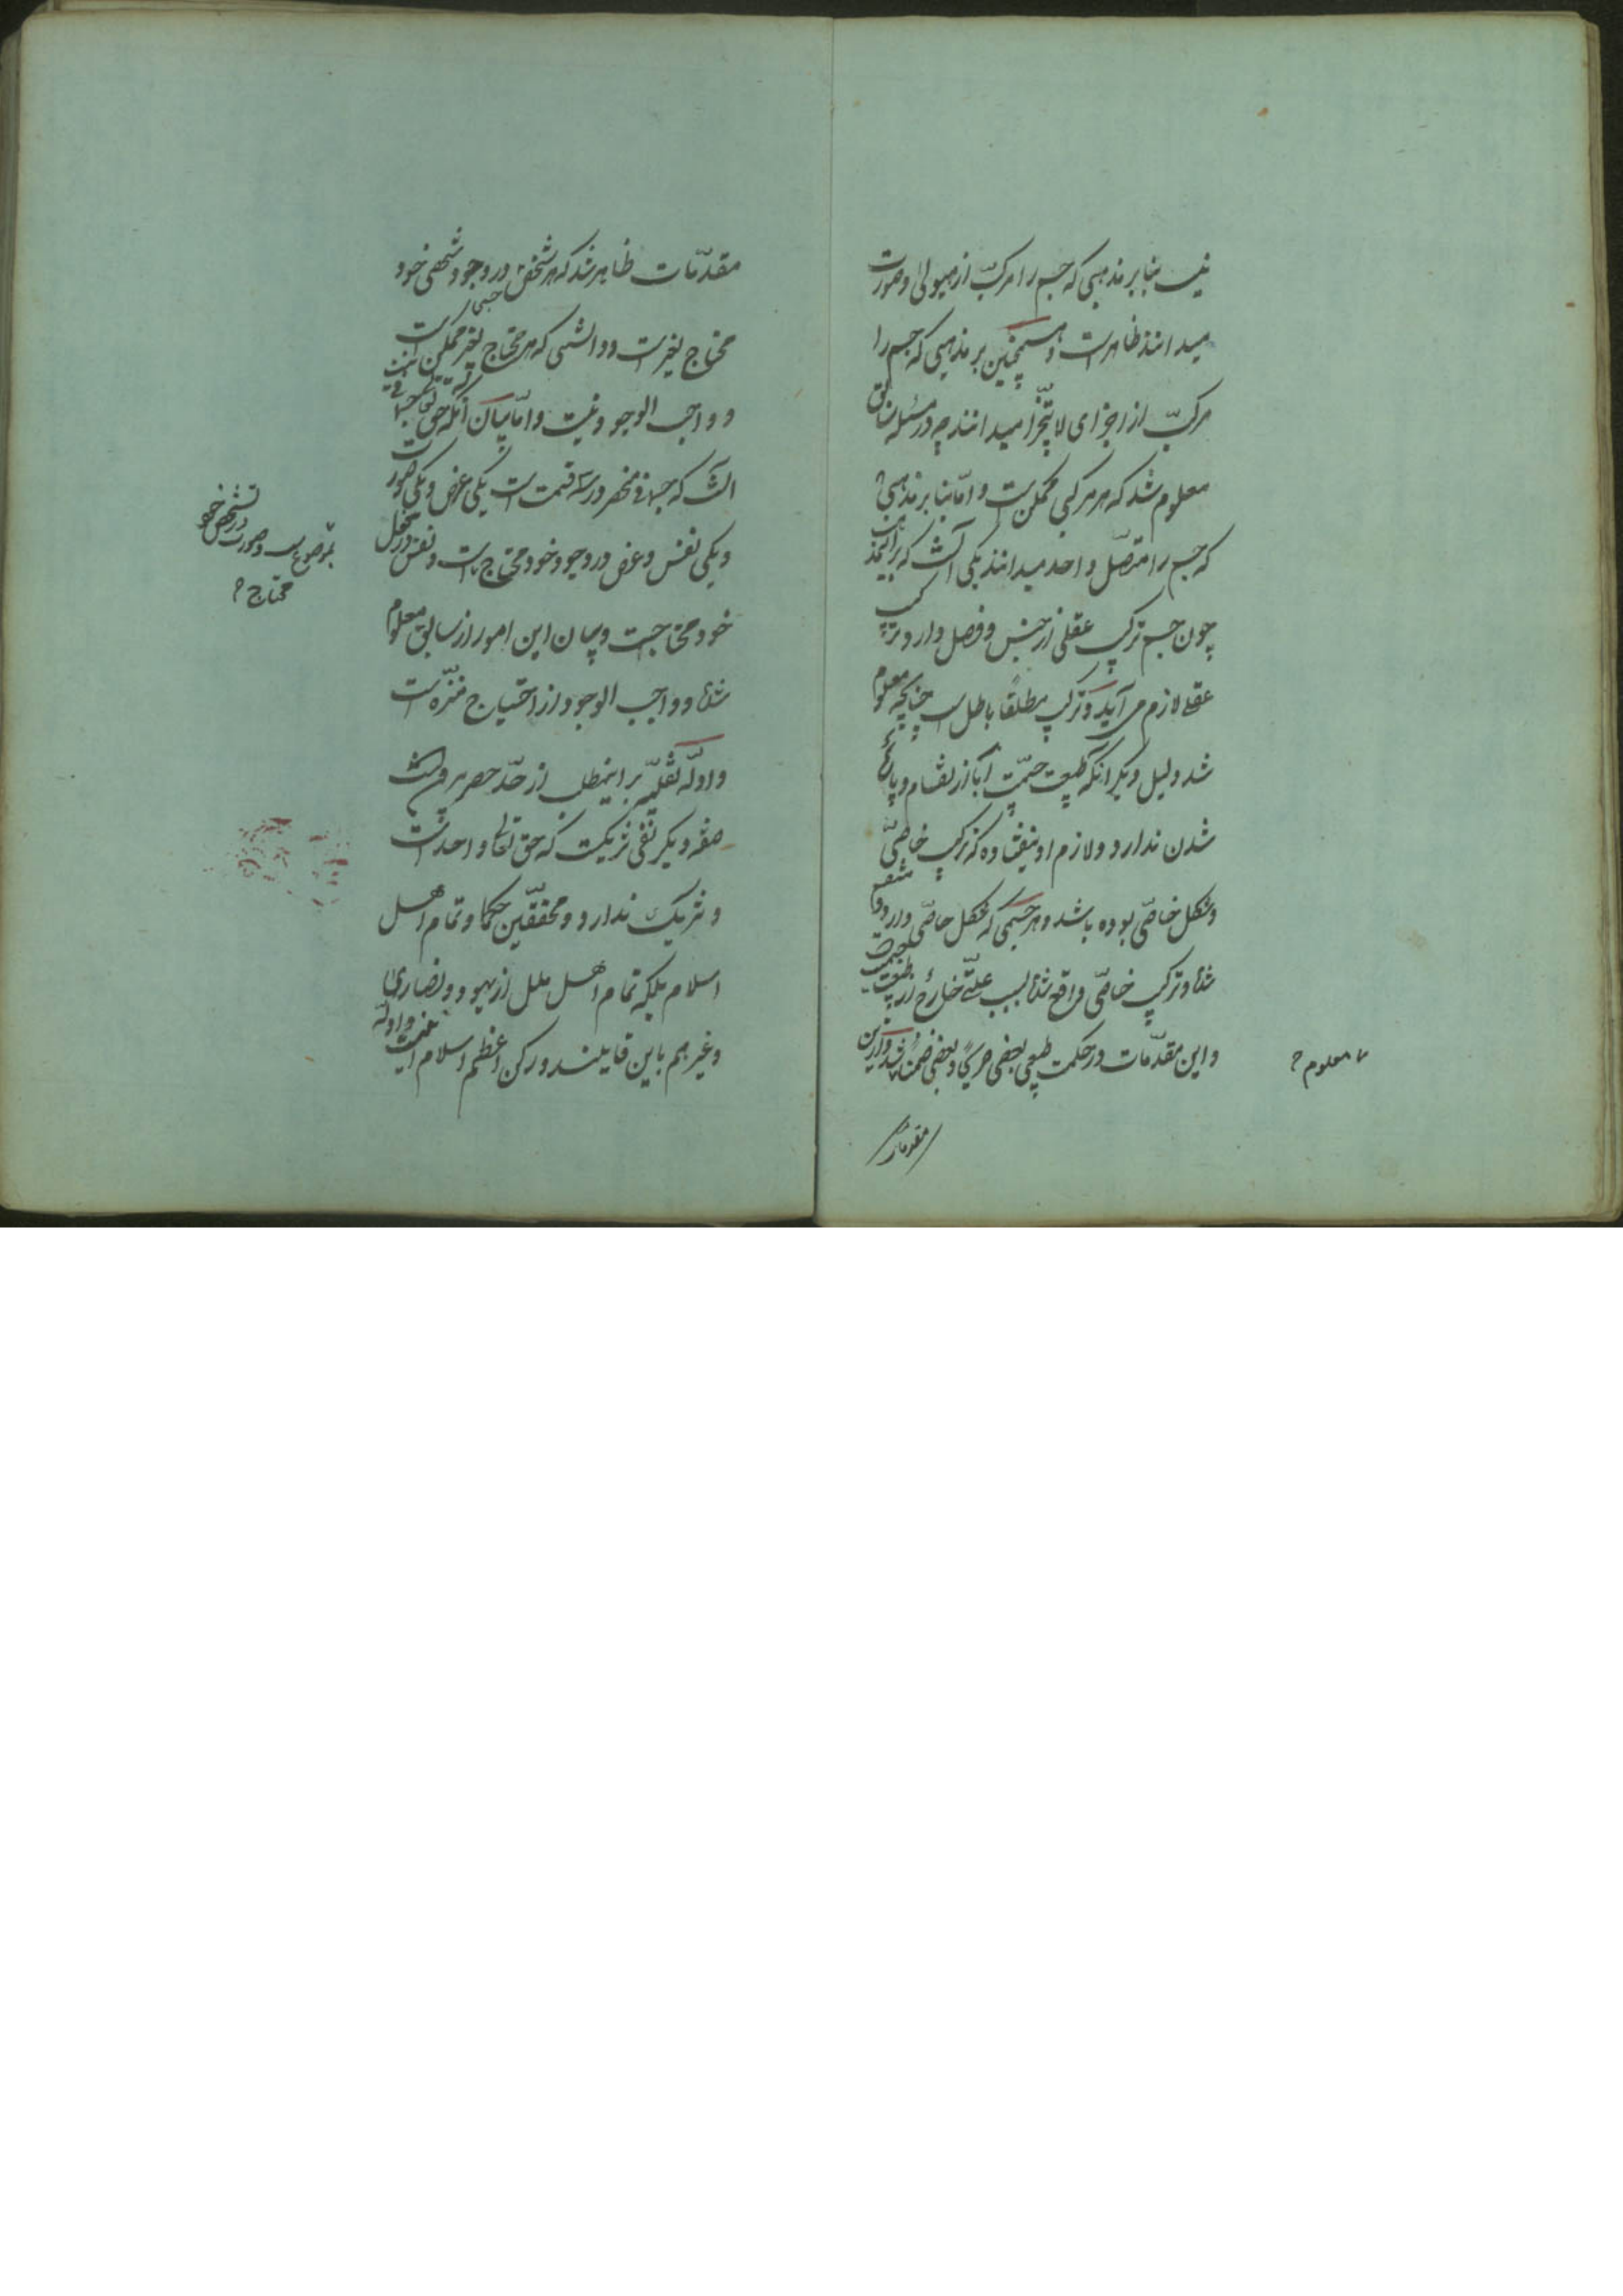 نیست بنابر مذهبی که جسم را مرکّب از هیولی و صورت
میدانند ظاهر است و همچنین بر مذهبی که جسم را
مرکّب از اجزای لا یتجزّا میدانند چه در مسئله سابق
معلوم شد که هر مرکبی ممکن است و امّا بنابر مذهبی
که جسم را متّصل واحد میدانند یکی آنست که بر این مذهب
چون جسم ترکیب عقلی از جنس و فصل دارد ترکیب
عقلے لازم می آید و ترکیب مطلقاً باطل است چنانچه معلوم
شد دلیل دیگر انکه طبیعت جسمیّت ابا از انقسام و پاره
شدن ندارد و لازم او نیفتاده که ترکیب خاصّی
و شکل خاصّی بوده باشد و هر جسمی که شکل خاصّی دارد و منقسم
شده و ترکیب خاصّی واقع شده بسبب علّتے خارج از طبیعت جسمیت
و این مقدّمات در حکمت طبیعی بعضی صریحاً و بعضی ضمناً شد و از این
معلوم
مقدمات
مقدّمات ظاهر شد که هر شخص جسمی در وجود شخصی خود
محتاج بغیر است و دانستی که هر محتاج بغیر ممکن است
و واجب الوجود نیست و امّا بیان آنکه حق تعالی جسمانی نیست
آنست که جسمانی منحصر در سه قسمت است یکی عرض و یکی صورت
و یکی نفس و عرض در وجود خود محتاج است و نفس در فعل
بموضوع است و صورت در تشخص خود
محتاج
خود محتاجست و بیان این امور از سابق معلوم
شده و واجب الوجود از احتیاج منزّه است
و ادلّه نقلیّه بر اینمطلب از حدّ حصر بیرونست
صفه دیکر نفی شریکست که حق تعالی واحد است
و شریک ندارد و محققّین حکما و تمام اهل
اسلام بلکه تمام اهل ملل از یهود و نصاری
و غیرهم باین قایلند و رکن اعظم اسلام اینست و ادلّه